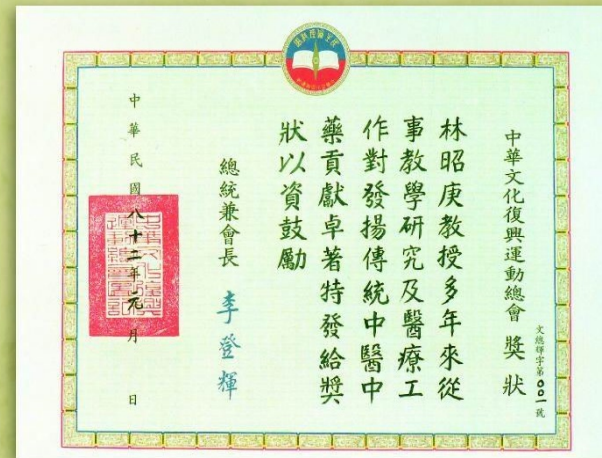 中華文化復興運動總會 獎狀
文總輝字第001號
林昭庚教授多年來從
事教學研究及醫療工
作對發揚傳統中醫中
藥貢獻卓著特發給獎
狀以資鼓勵
總統兼會長 李登輝
中華民國八十二年元月 日